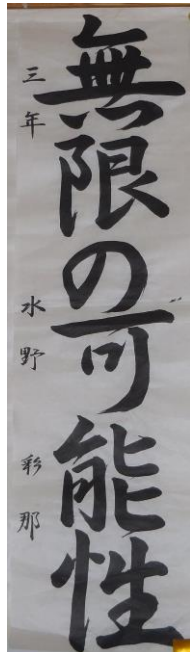 無限の可能性
三年 水野 彩那